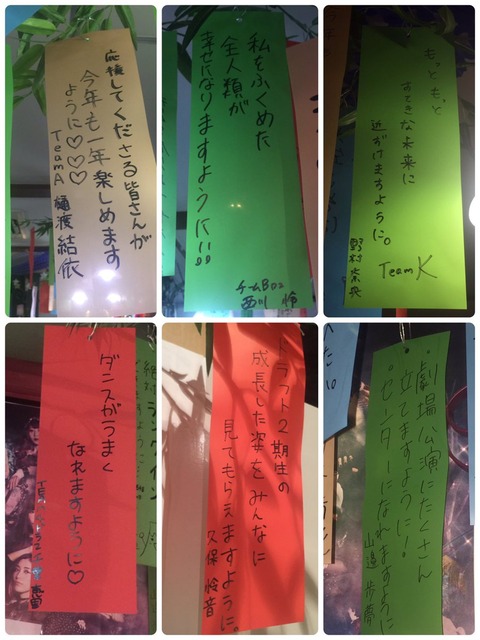 応援してくださる皆さんが
今年も一年楽しめます
ように♡♡♡
TeamA 樋渡 結依
私をふくめた
全人類が
幸せになりますように!!
チームB
西川 怜
もっと、もっと
すてきな未来に
近ずけますように。
野村奈央
Team K
ダンスがうまく
なれますように♡
ドラフト2期生の
成長した姿をみんなに
見てもらえますように。
久保 怜音
・劇場公演にたくさん
立てますように!
・センターになれますように
山邊 歩夢